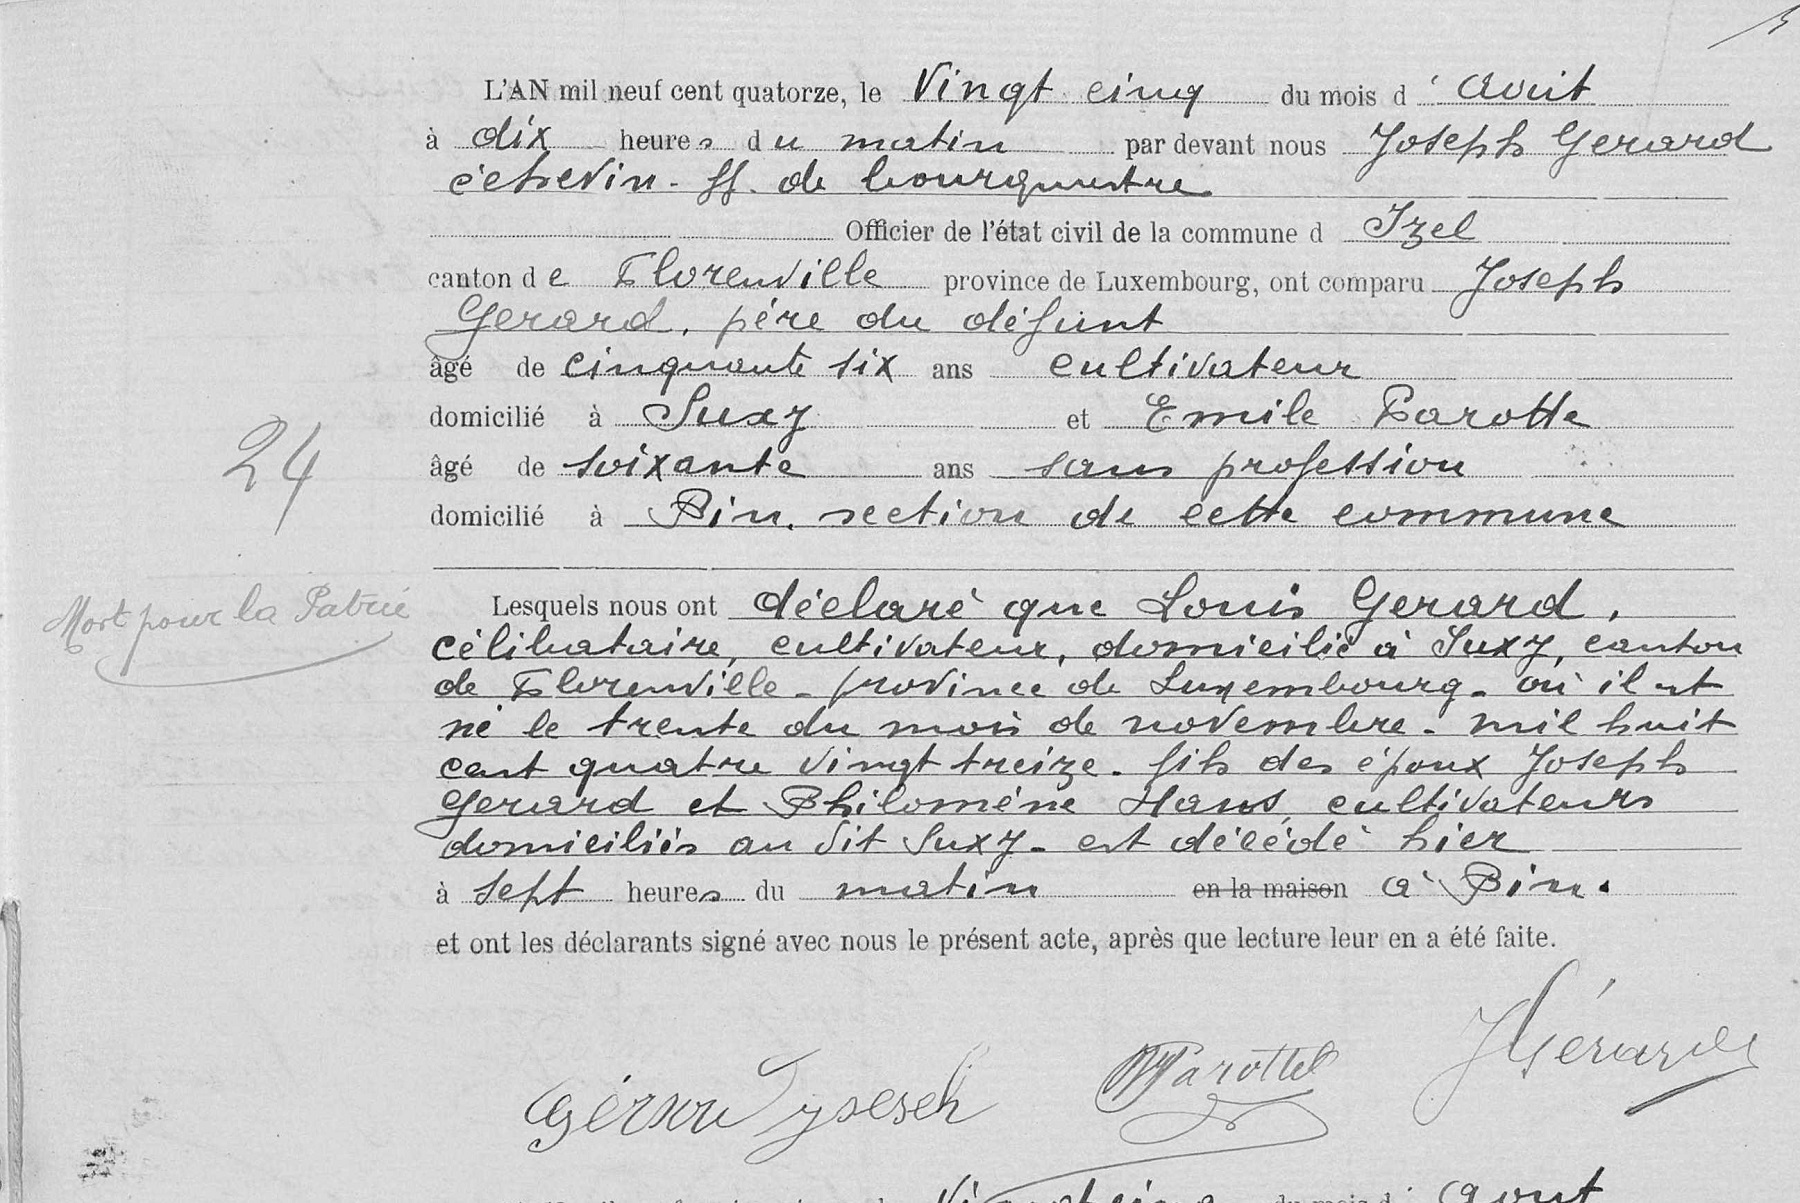 L'AN mil neuf cent quatorze, le Vingt cinq du mois d'Aout
à dix heures du matin par devant nous Joseph Gerard
échevin - ff. de bourgmestre
Officier de l'état civil de la commune d Izel
canton de Florenville province de Luxembourg, ont comparu Joseph
Gerard, père du défunt
âgé de cinquante six ans cultivateur
domicilié à Suxy et Emile Parotte
âgé de soixante ans sans profession
24
domicilié à Pin, section de cette commune
Mort pour la Patrie
Lesquels nous ont déclaré que Louis Gerard,
célibataire, cultivateur, domicilié à Suxy, canton
de Florenville - province de Luxembourg - où il est
né le trente du mois de novembre - mil huit
cent quatre vingt treize - fils des époux Joseph
Gerard et Philomène Hans, cultivateurs
domiciliés au dit Suxy - est décédé hier
à sept heures du matin en la maison à Pin.
et ont les déclarants signé avec nous le présent acte, après que lecture leur en a été faite.
JGérard
Parotte
Gérard